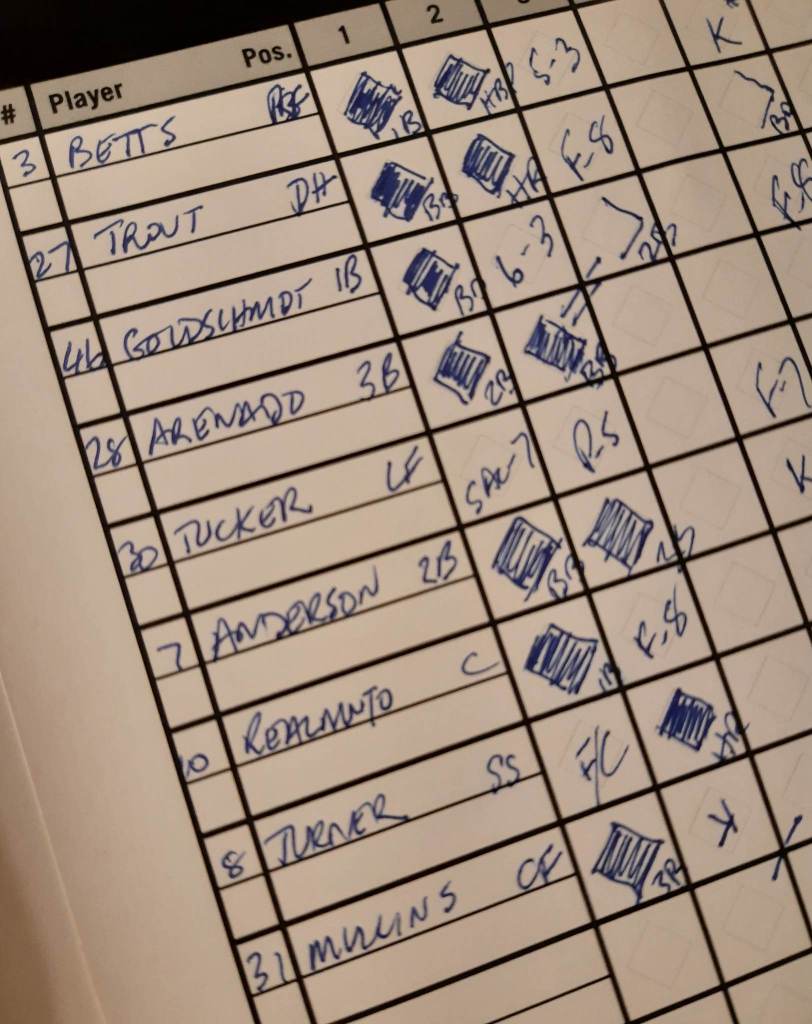 # Player Pos. 1 2
3 BETTS 1B HBP 5-3 K
27 TROUT DH BB HR F-8 BB
46 GOLDSCHMIDT 1B BB 6-3 2B F-8
28 ARENADO 3B 2B BB
30 TUCKER LF SAC-7 P-5 F-7
7 ANDERSON 2B BB K
10 REALMUTO C 1B F-8
8 TURNER SS F/C HR
31 MULLINS CF 3B K